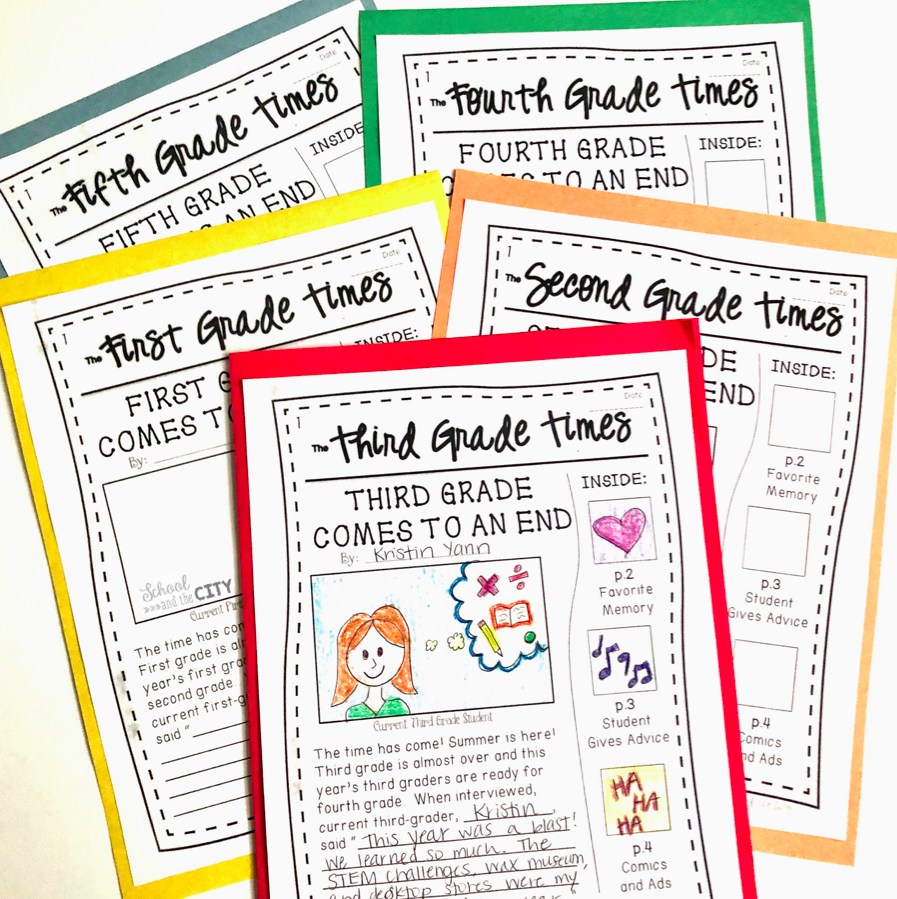 Date
1
The Fifth Grade Times
INSIDE:
FIFTH GRADE
COMES TO AN END
Date
1
The Fourth Grade Times
INSIDE:
FOURTH GRADE
COMES TO AN END
Date
1
The First Grade Times
INSIDE:
FIRST G
COMES TO
By:
School
and the CITY
Current Fir
The time has com
First grade is al
year's first grad
second grade.
current first-g
said "
Date
1
The Second Grade Times
INSIDE:
DE
END
p.2
Favorite
Memory
p.3
Student
Gives Advice
p.4
Comics
and Ads
Date
1
The Third Grade Times
INSIDE:
THIRD GRADE
COMES TO AN END
By: Kristin Yann
Current Third Grade Student
The time has come! Summer is here!
Third grade is almost over and this
year's third graders are ready for
fourth grade. When interviewed,
current third-grader, Kristin,
said "This year was a blast!
We learned so much. The
STEM challenges, wax museum,
and desktop stores were my
p.2
Favorite
Memory
p.3
Student
Gives Advice
HA
HA
HA
p.4
Comics
and Ads